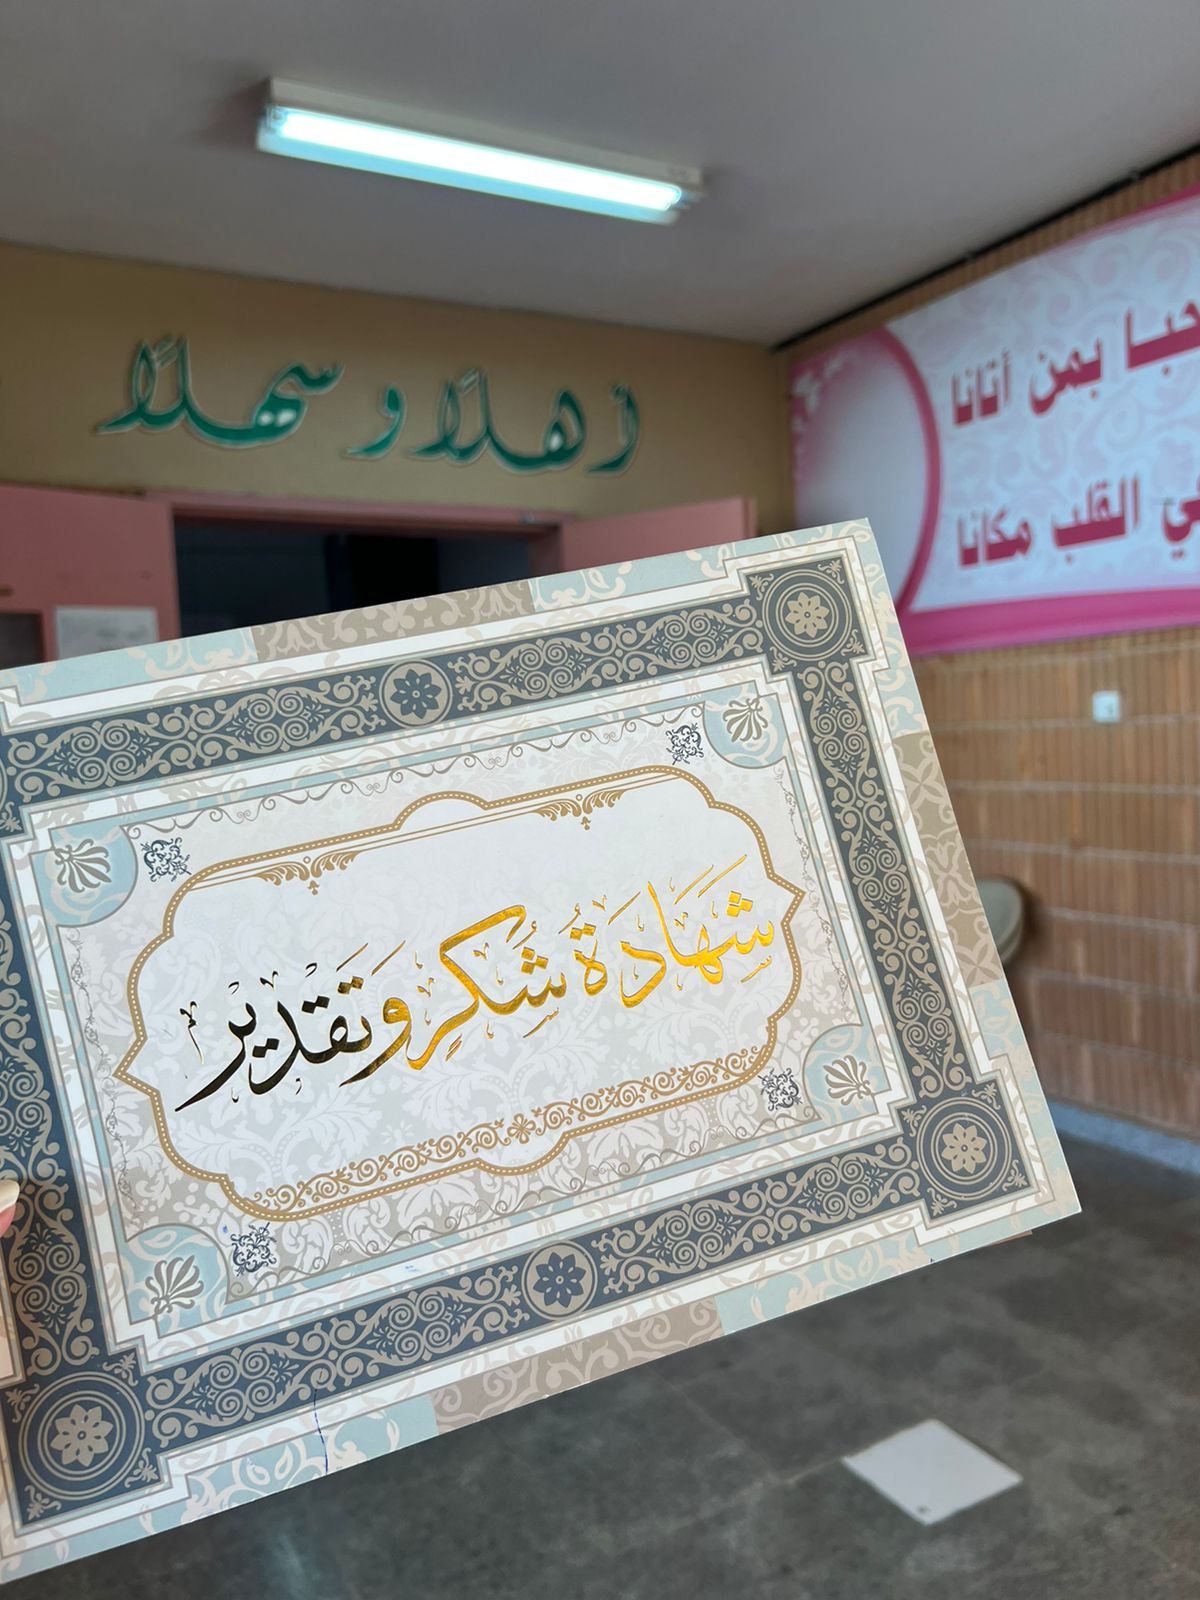 أهلًا و سهلًا
حبا بمن أتانا
القلب مكانا
شَهَادَةُ شُكرٍ وَتَقْدِيْر